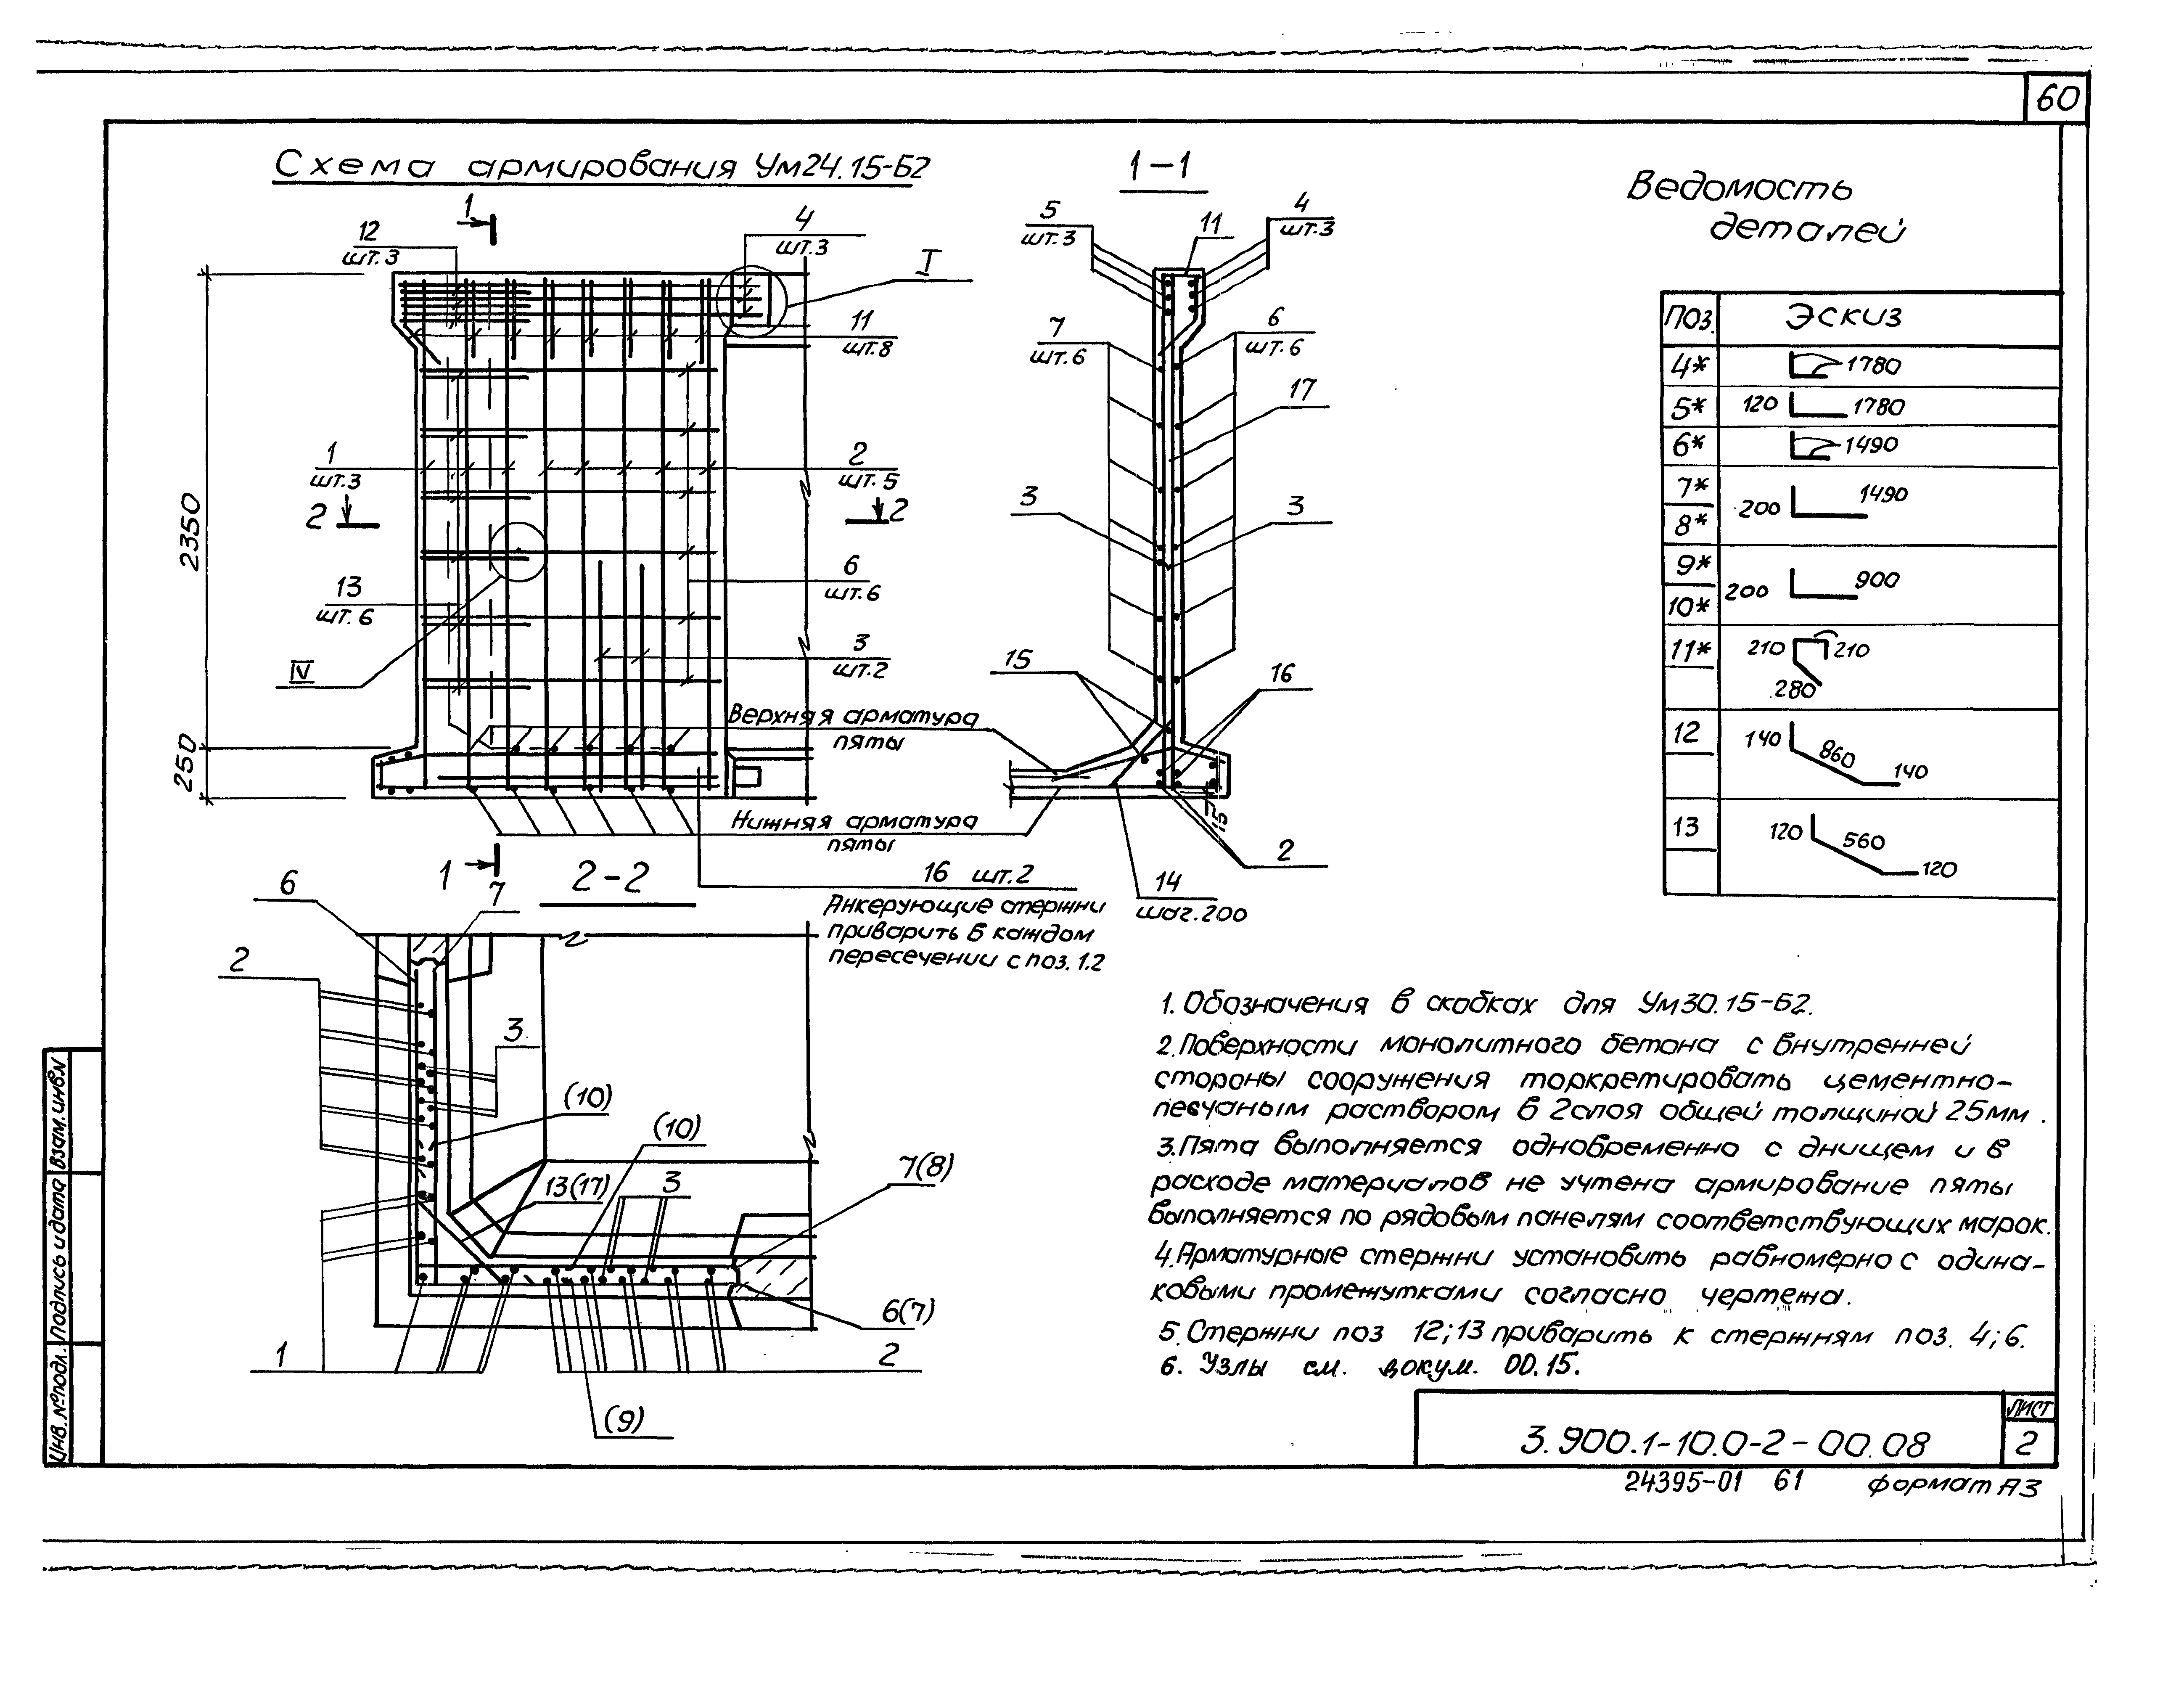 60
Схема армирования Ум24.15-Б2
1-1
Ведомость
деталей
1
12
шт.3
4
шт.3
I
11
шт.8
1
шт.3
2
шт.5
2
2
13
шт.6
6
шт.6
IV
3
шт.2
2350
250
Верхняя арматура
пяты
Нижняя арматура
пяты
16 шт.2
Анкерующие стержни
приварить в каждом
пересечении с поз. 1.2
1
5
шт.3
11
4
шт.3
7
шт.6
6
шт.6
17
3
3
15
16
15
2
14
шаг.200
Поз. Эскиз
4* 1780
5* 120 1780
6* 1490
7*
8* 200 1490
9*
10* 200 900
11* 210 210 280
12 140 860 140
13 120 560 120
2-2
6
7
2
3
(10)
(10)
13(17)
3
7(8)
6(7)
1
2
(9)
1. Обозначения в скобках для Ум30.15-Б2.
2. Поверхности монолитного бетона с внутренней
стороны сооружения торкретировать цементно-
песчаным раствором в 2слоя общей толщиной 25мм.
3. Пята выполняется одновременно с днищем и в
расходе материалов не учтена армирование пяты
выполняется по рядовым панелям соответствующих марок.
4. Арматурные стержни установить равномерно с одина-
ковыми промежутками согласно чертежа.
5. Стержни поз 12; 13 приварить к стержням поз. 4; 6.
6. Узлы см. докум. 00.15.
Инв. №подл. Подпись и дата Взам. инв№
3.900.1-10.0-2-00.08
Лист
2
24395-01 61
формат А3